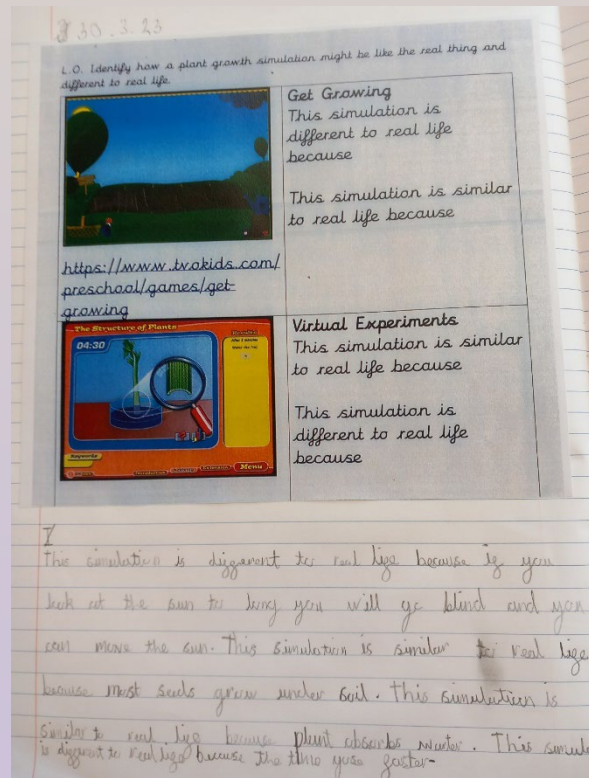 30.3.23
L.O. Identify how a plant growth simulation might be like the real thing and
different to real life.
Get Growing
This simulation is
different to real life
because
This simulation is similar
to real life because
https://www.tvokids.com/
preschool/games/get-
growing
The Structure of Plants
04:30
Keywords
Menu
Virtual Experiments
This simulation is similar
to real life because
This simulation is
different to real life
because
I
This simulation is different to real life because if you
look at the sun to long you will go blind and you
can move the sun. This simulation is similar to real life
because most seeds grow under soil. This simulation is
similar to real life because plant absorbs water. This simula
is different to real life because the time gose faster